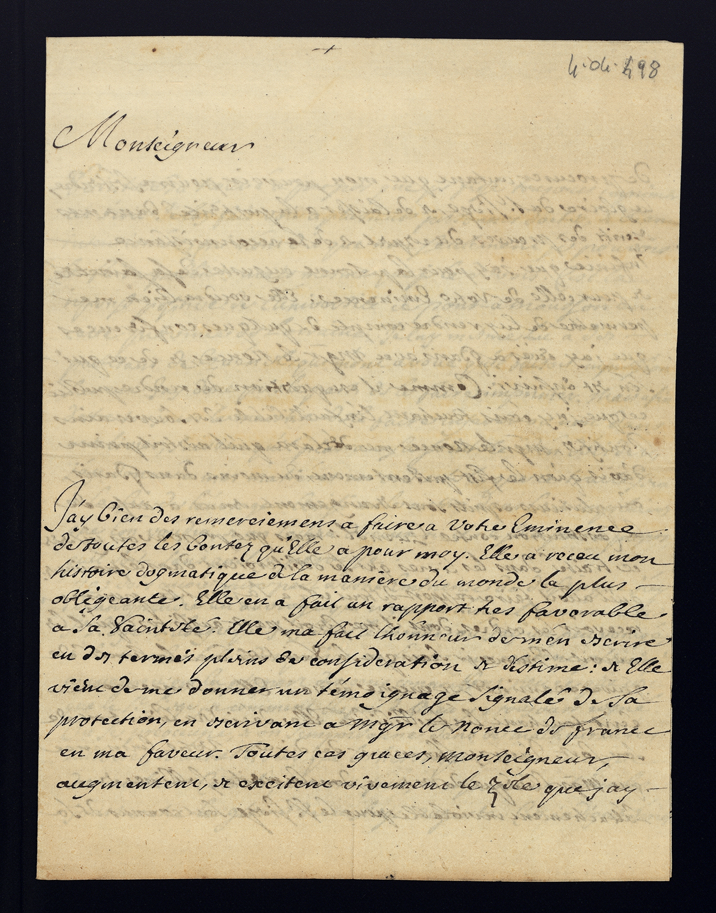 4.04.498
Monseigneur
J'ay bien des remerciemens a faire a Votre Eminence
de toutes les bontez qu'Elle a pour moy. Elle a receu mon
histoire dogmatique de la maniere du monde la plus
obligeante. Elle en a fait un rapport tres favorable
a Sa Sainteté. Elle ma fait lhonneur de men écrire
en des termes pleins de consideration & destime : & Elle
vient de me donner un témoignage signalé de Sa
protection, en écrivant a Mgr le Nonce de france
en ma faveur. Toutes ces graces, Monseigneur,
augmentent, & excitent vivement le zêle que jay